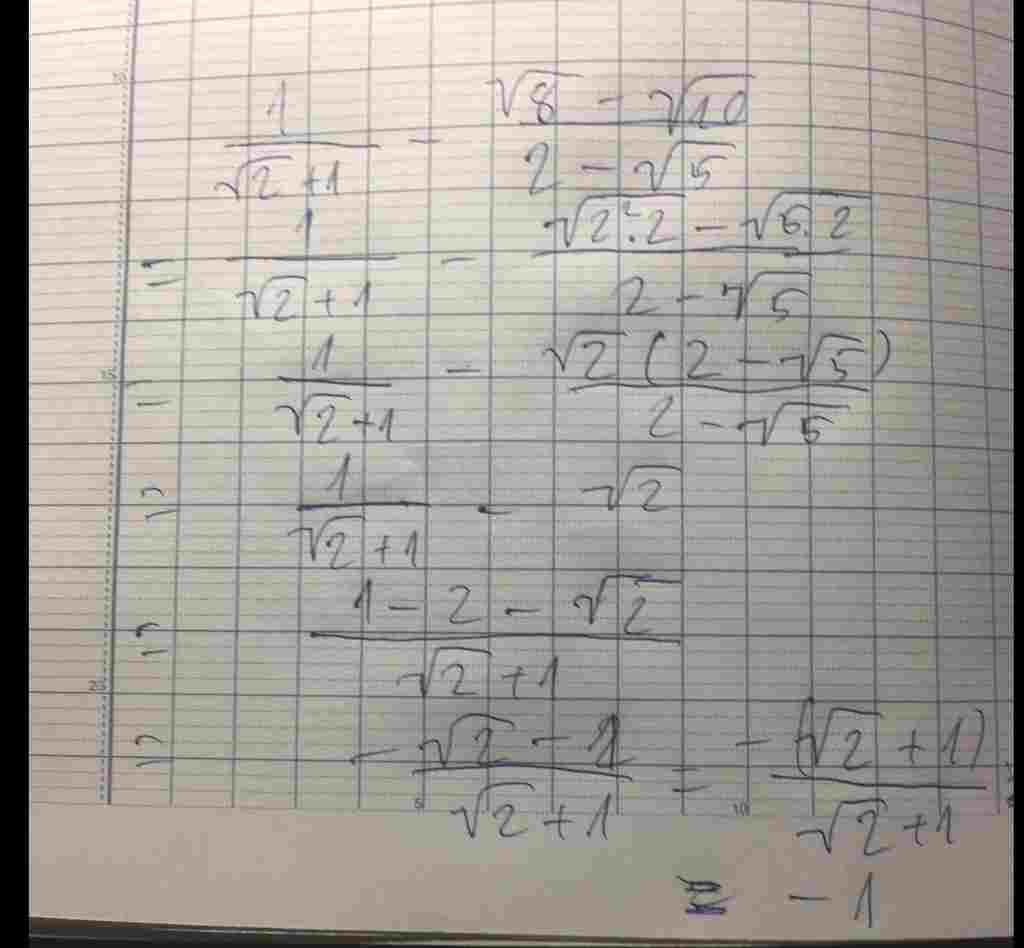 1/(√2 + 1) - (√8 - √10)/(2 - √5)
= 1/(√2 + 1) - (√(2².2) - √(5.2))/(2 - √5)
= 1/(√2 + 1) - (√2 (2 - √5))/(2 - √5)
= 1/(√2 + 1) - √2
= (1 - 2 - √2)/(√2 + 1)
= (-√2 - 1)/(√2 + 1) = (-(√2 + 1))/(√2 + 1) =
= -1